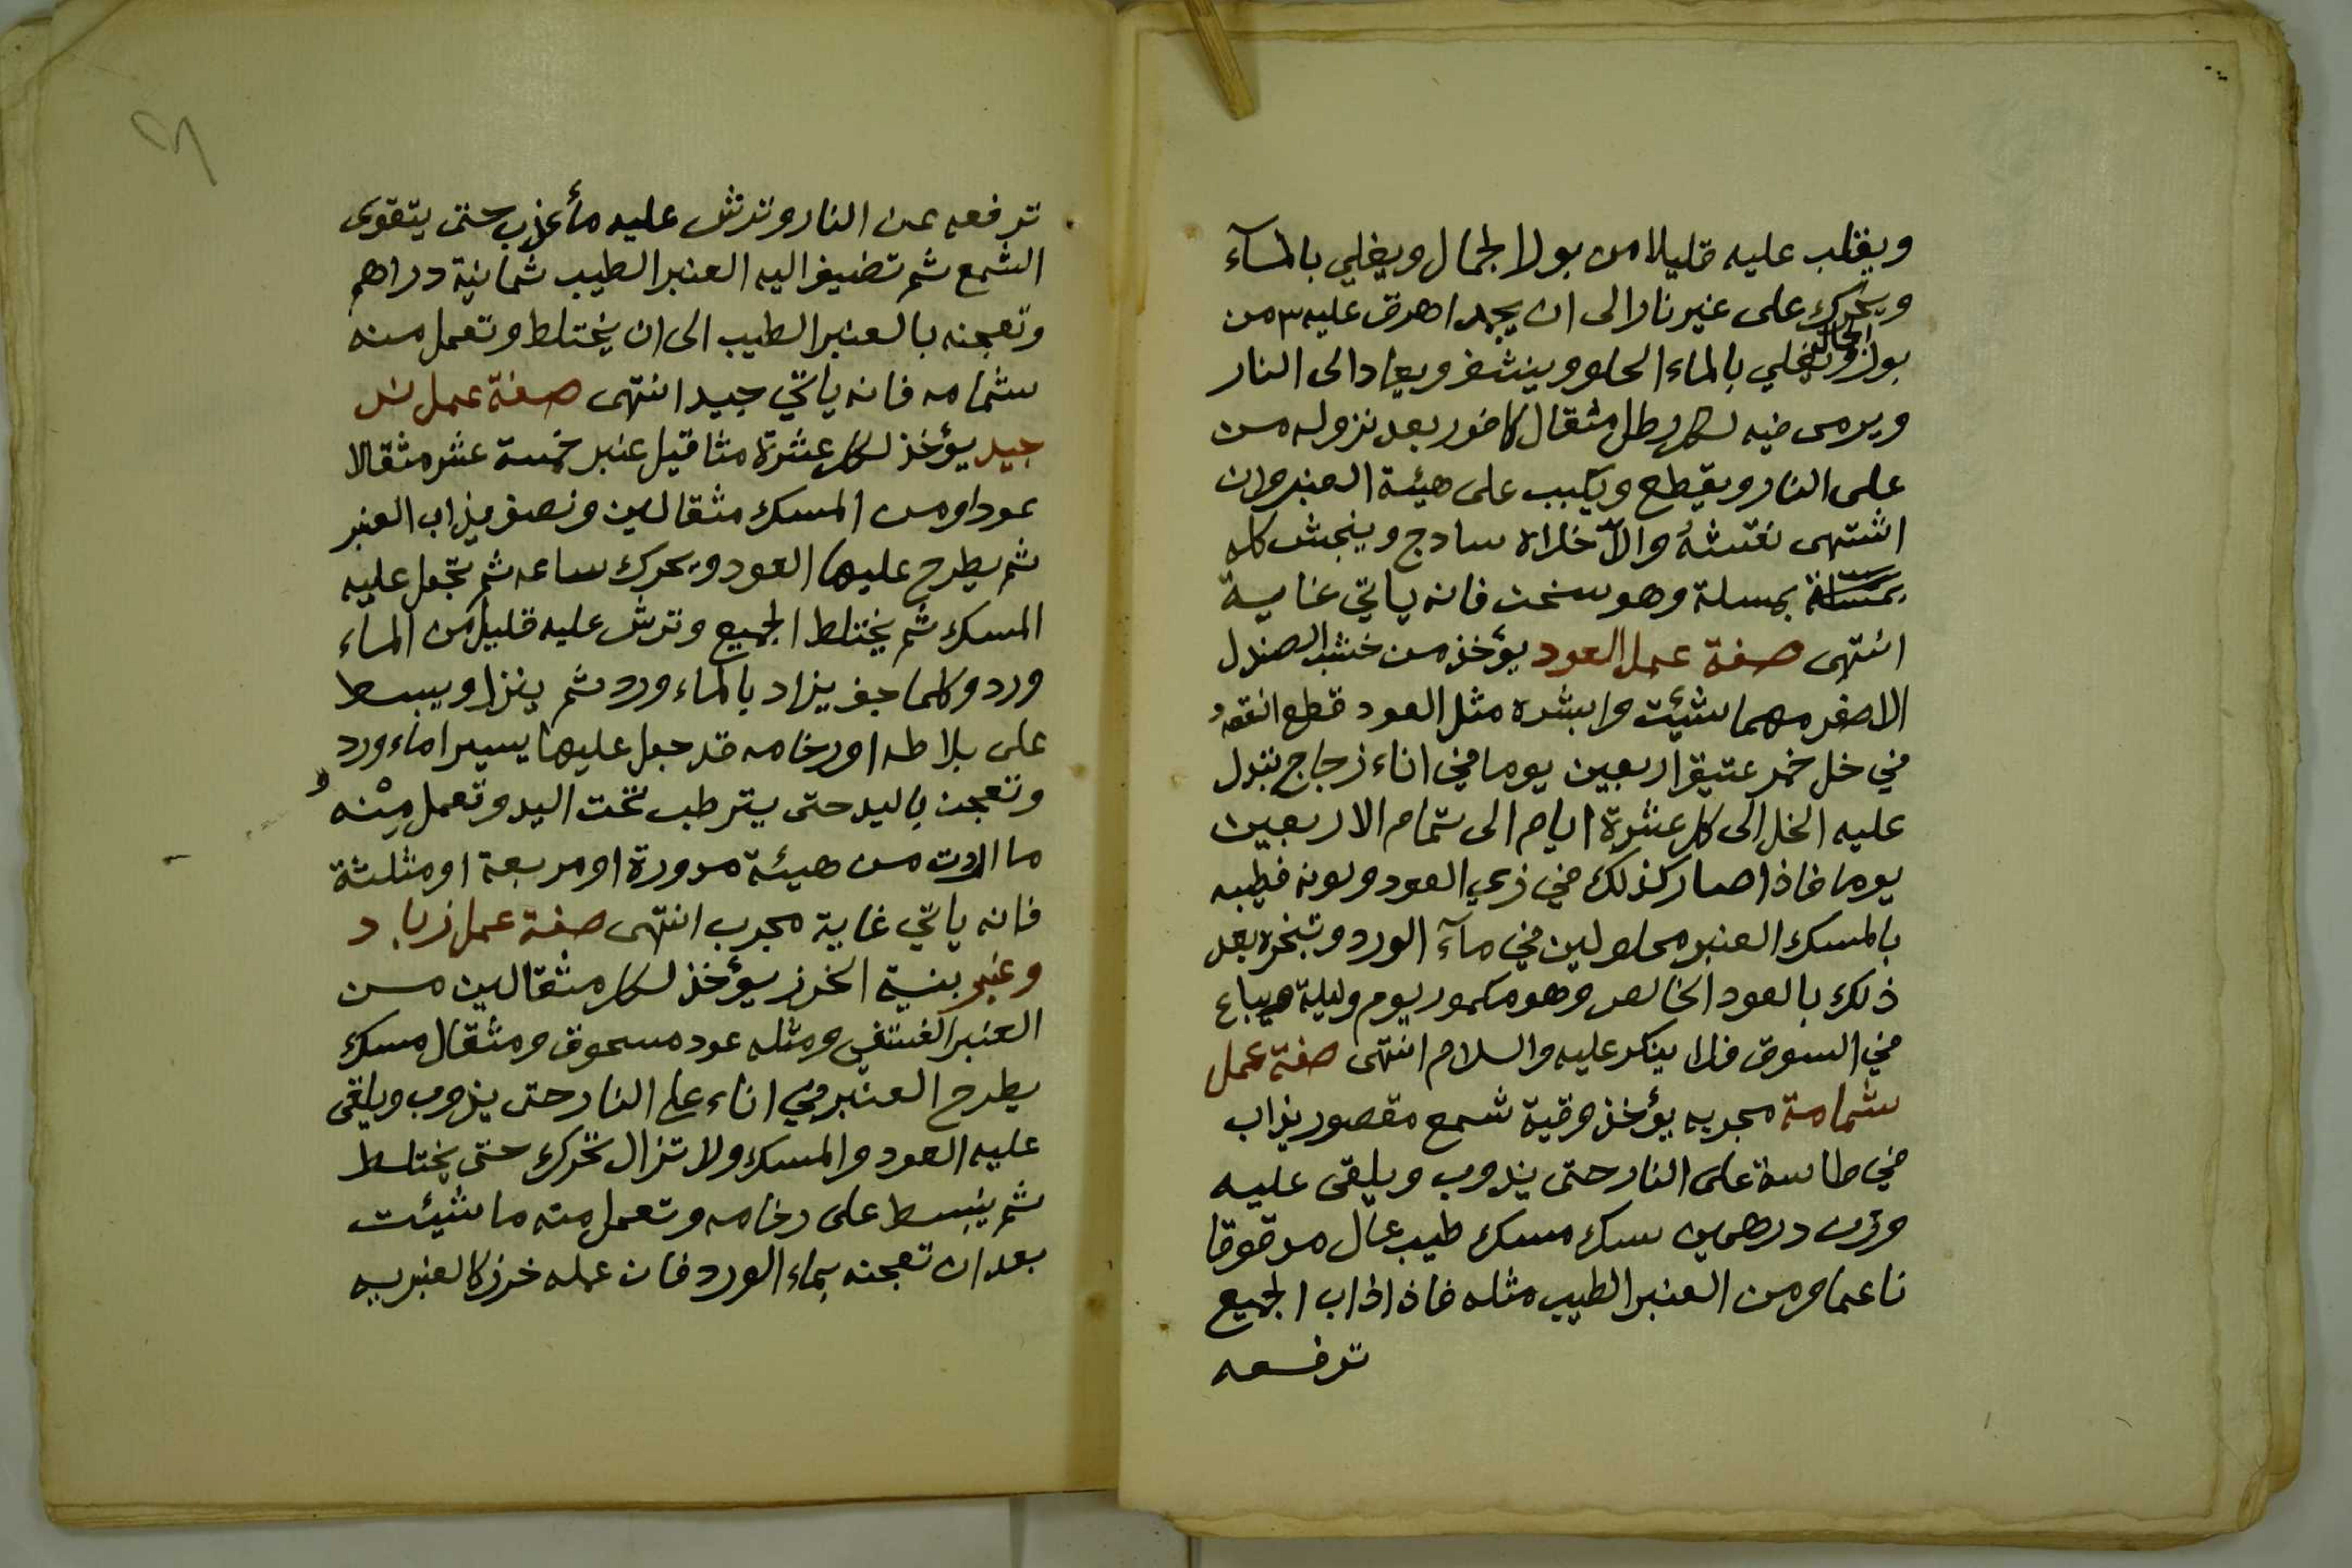 ويقلب عليه قليلا من بول الجمال ويغلي بالمآء
ويحرك على غير نار الى ان يجمد اهرق عليه ٣ من
بول الجمال ويغلي بالماء الحلو وينشف ويعاد الى النار
ويرمى فيه لكل رطل مثقال كافور بعد نزوله من
على النار ويقطع ويكبب على هيئة العنبر وان
اشتهى نقشه والا خلاه سادج وينجش كله
بمسلة وهو سخن فانه ياتي غاية
انتهى صفة عمل العود يؤخذ من خشب الصندل
الاصفر مهما شئت وابشره مثل العود قطع انقعه
في خل خمر عتيق اربعين يوما في اناء زجاج تبدل
عليه الخل الى كل عشرة ايام الى تمام الاربعين
يوما فاذا صار كذلك في زي العود ولونه فطيبه
بالمسك العنبر محلولين في مآء الورد وتبخره بعد
ذلك بالعود الخالص وهو مكمور يوم وليلة ويباع
في السوق فلا ينكر عليه والسلام انتهى صفة عمل
شمامة مجربه يؤخذ وقية شمع مقصور يذاب
في طاسة على النار حتى يذوب ويلقى عليه
وزن درهمين سك مسك طيب عال مدقوقا
ناعما ومن العنبر الطيب مثله فاذا ذاب الجميع
ترفعه
ترفعه عن النار وترش عليه مأ عذب حتى يتقوى
الشمع ثم تضيف اليه العنبر الطيب ثمانية دراهم
وتعجنه بالعنبر الطيب الى ان يختلط وتعمل منه
شمامه فانه ياتي جيد انتهى صفة عمل ند
جيد يؤخذ لكل عشرة مثاقيل عنبر خمسة عشر مثقالا
عودا ومن المسك مثقالين ونصف يذاب العنبر
ثم يطرح عليها العود ويحرك ساعه ثم تجعل عليه
المسك ثم يختلط الجميع وترش عليه قليل من الماء
ورد وكلما جف يزاد بالماء ورد ثم ينزل ويبسط
على بلاطه او رخامه قد جعل عليها يسيرا ماء ورد
وتعجن باليد حتى يترطب تحت اليد وتعمل منه
ما اردت من هيئة مدورة او مربعة او مثلثة
فانه ياتي غاية مجرب انتهى صفة عمل زباد
وعنبر بنية الخرز يؤخذ لكل مثقالين من
العنبر الفستقي ومثله عود مسحوق ومثقال مسك
يطرح العنبر في اناء على النار حتى يذوب ويلقى
عليه العود والمسك ولا تزال تحرك حتى يختلط
ثم يبسط على رخامه وتعمل منه ما شيئت
بعد ان تعجنه بماء الورد فان عمله خرز كالعنبريه